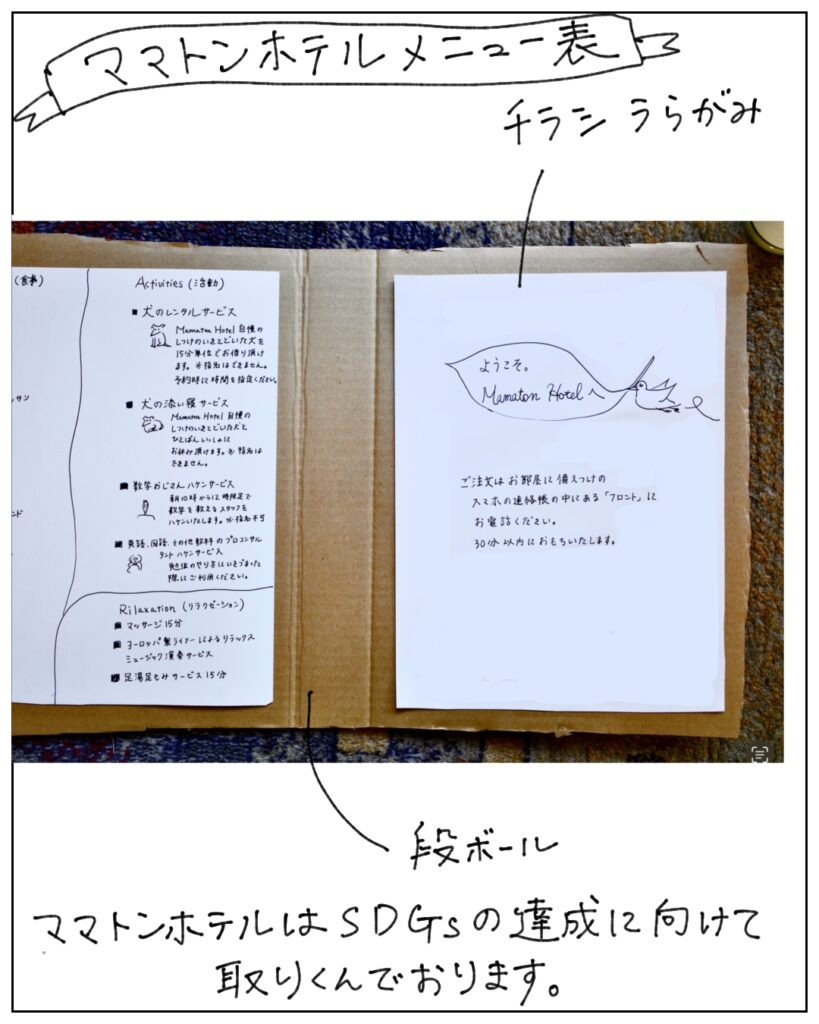 ママトンホテルメニュー表
チラシ うらがみ
(食事)
サン
ンド
Activities (活動)
■ 犬のレンタルサービス
Mamaton Hotel 自慢の
しつけのいきとどいた犬を
15分単位でお借り頂け
ます。※指名はできません。
予約時に時間を指定ください。
■ 犬の添い寝サービス
Mamaton Hotel 自慢の
しつけのいきとどいた犬と
ひとばんいっしょに
お休み頂けます。※指名は
できません。
■ 数学おじさんハケンサービス
朝10時から12時限定で
数学を教えるスタッフを
ハケンいたします。※指名不可
■ 英語、国語、その他教科のプロコンサル
タントハケンサービス
勉強のやり方にいきづまった
際にご利用ください。
Rilaxation (リラクゼーション)
■ マッサージ15分
■ ヨーロッパ製ライアーによるリラックス
ミュージック演奏サービス
■ 足湯足もみサービス15分
ようこそ。
Mamaton Hotel へ
ご注文はお部屋に備えつけの
スマホの連絡帳の中にある「フロント」に
お電話ください。
30分以内におもちいたします。
段ボール
ママトンホテルはSDGsの達成に向けて
取りくんでおります。